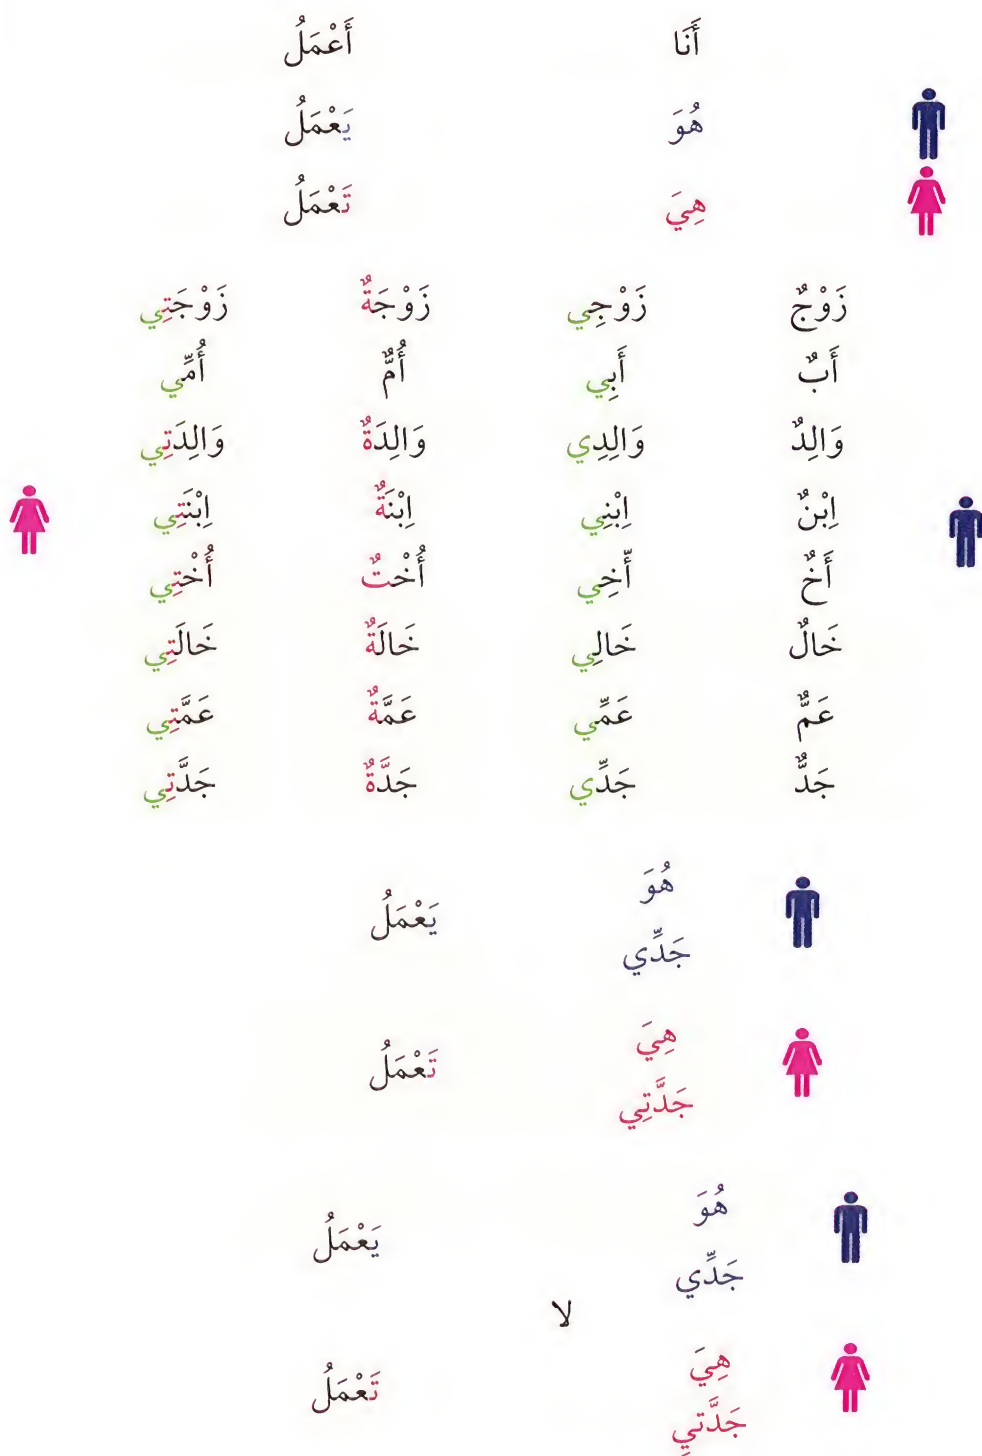 أَنَا أَعْمَلُ
هُوَ يَعْمَلُ
هِيَ تَعْمَلُ
زَوْجٌ زَوْجِي زَوْجَةٌ زَوْجَتِي
أَبٌ أَبِي أُمٌّ أُمِّي
وَالِدٌ وَالِدِي وَالِدَةٌ وَالِدَتِي
اِبْنٌ اِبْنِي اِبْنَةٌ اِبْنَتِي
أَخٌ أَّخِي أُخْتٌ أُخْتِي
خَالٌ خَالِي خَالَةٌ خَالَتِي
عَمٌّ عَمِّي عَمَّةٌ عَمَّتِي
جَدٌّ جَدِّي جَدَّةٌ جَدَّتِي
هُوَ
يَعْمَلُ
جَدِّي
هِيَ
تَعْمَلُ
جَدَّتِي
هُوَ
يَعْمَلُ
جَدِّي
لا
هِيَ
تَعْمَلُ
جَدَّتي